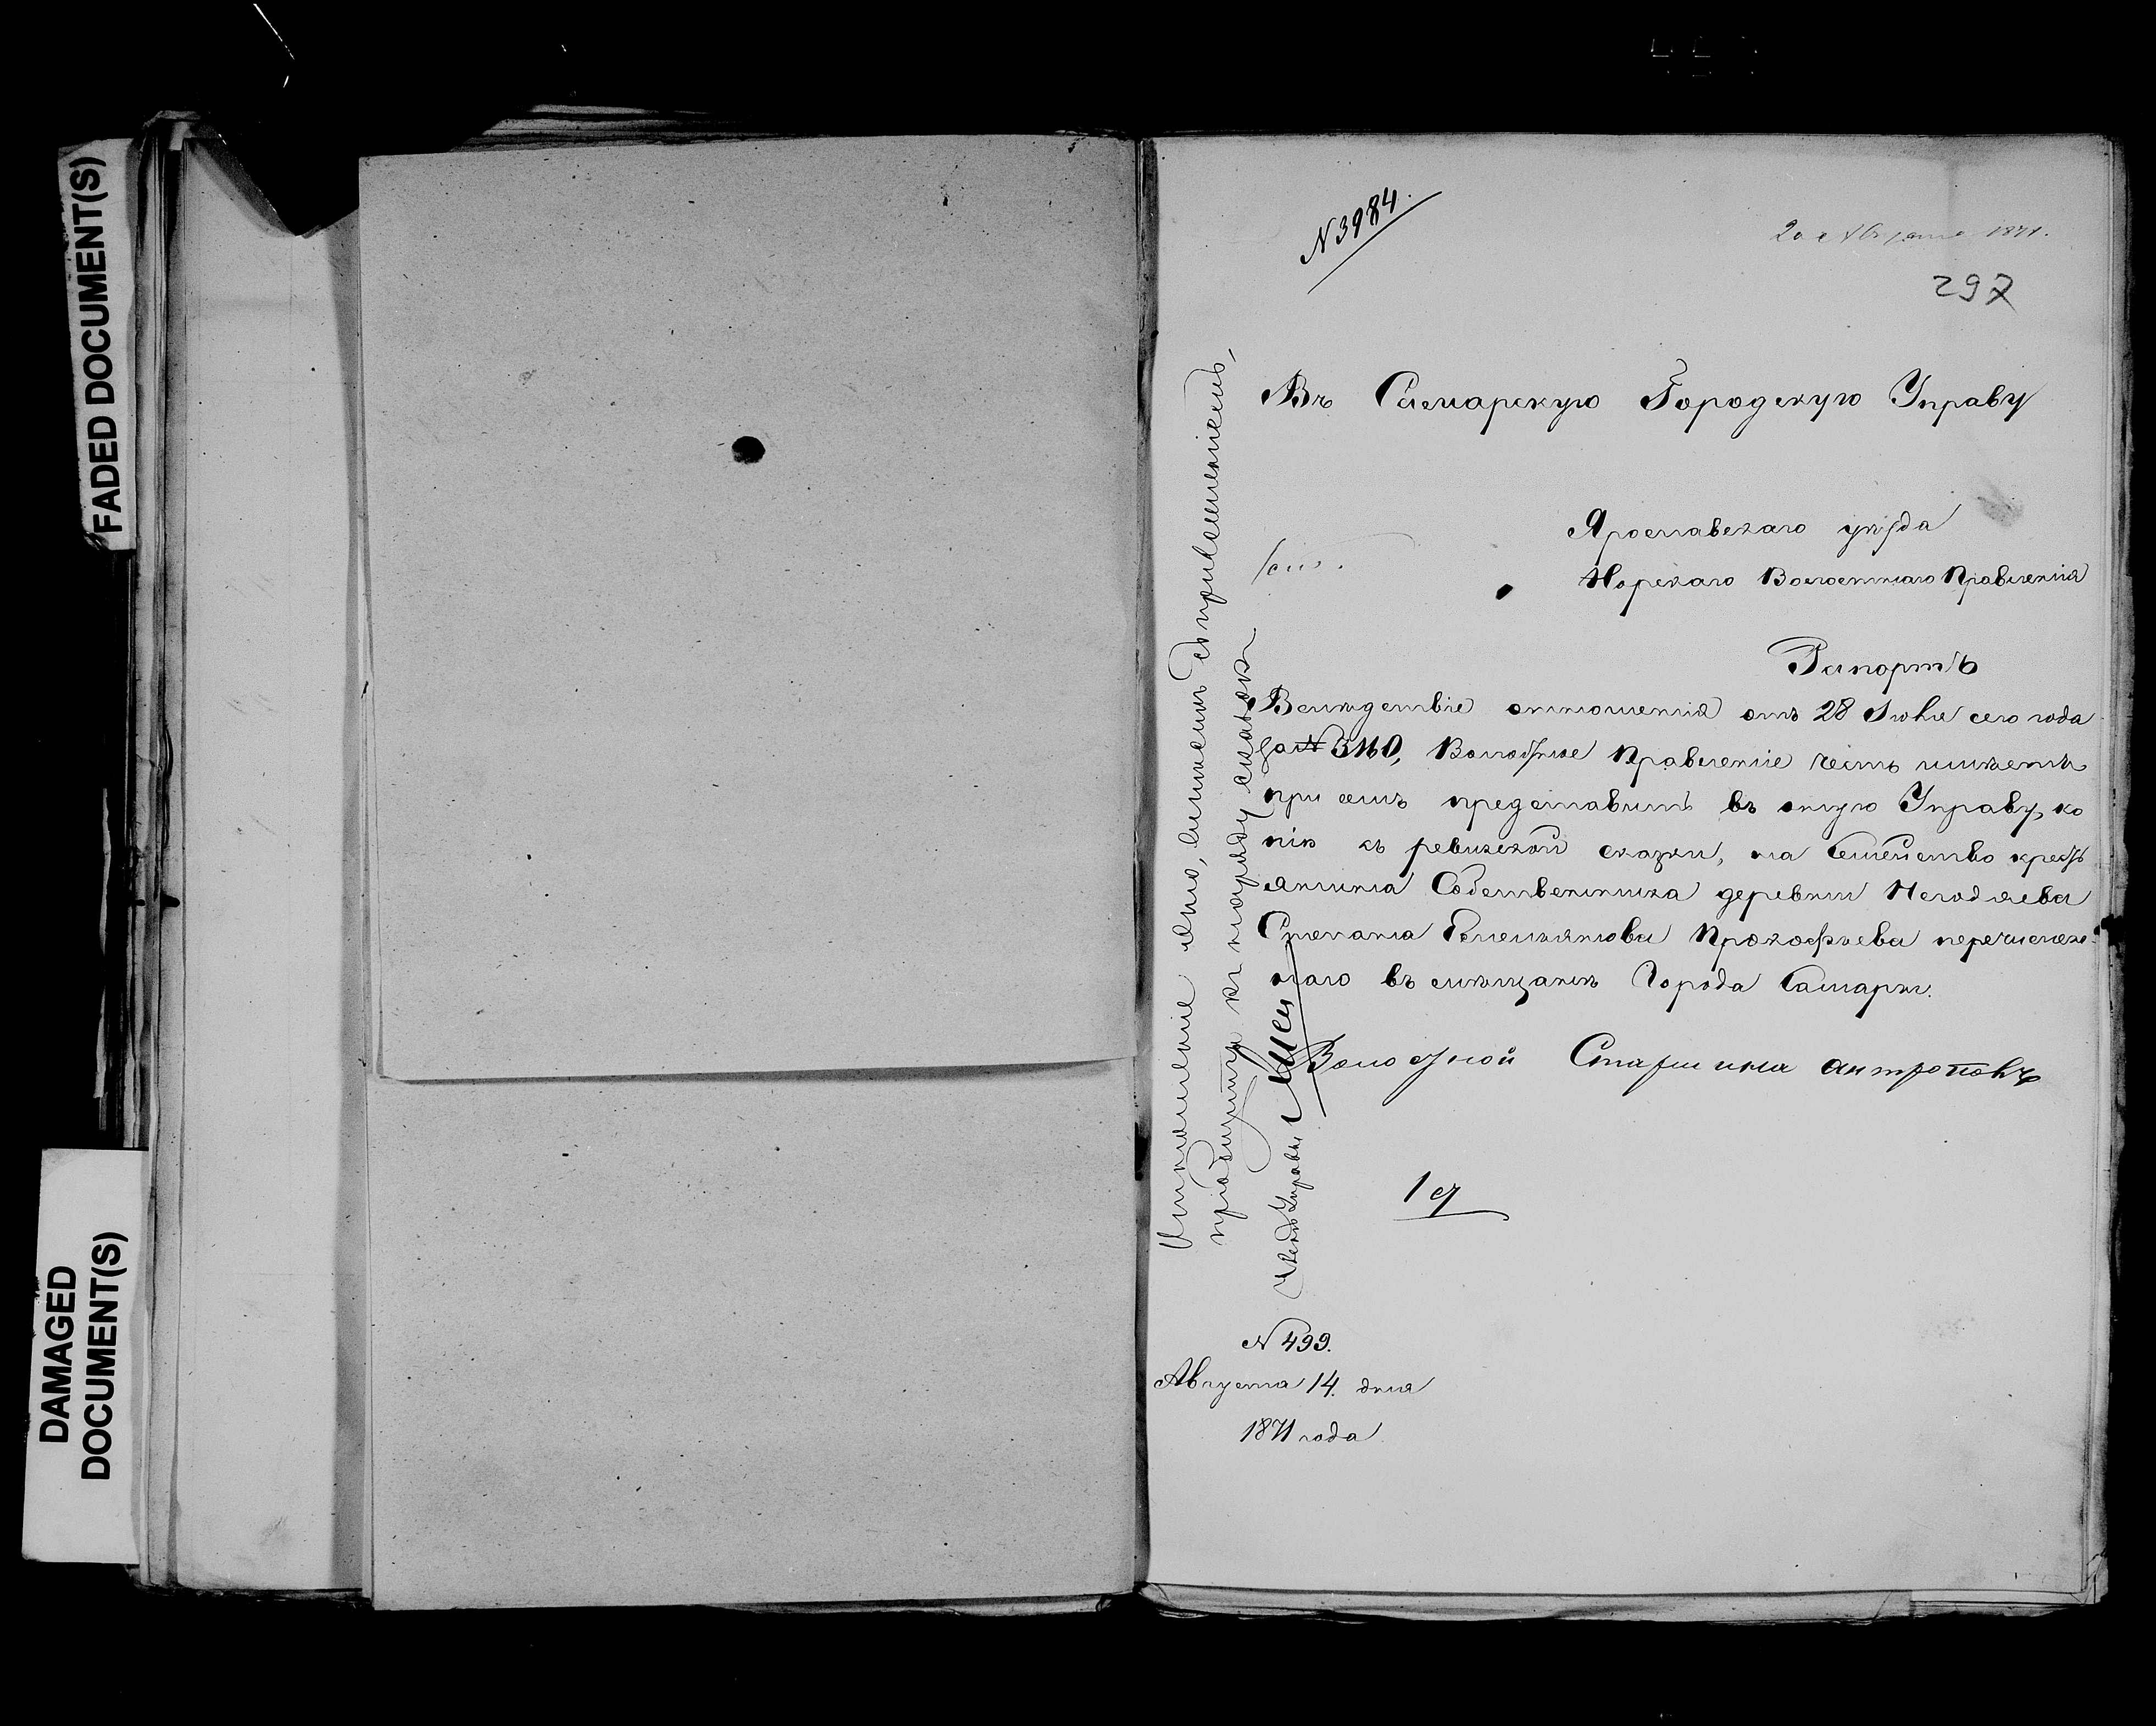 FADED DOCUMENT(S)
DAMAGED
DOCUMENT(S)
N 3984.
20 Августа 1871.
297
Въ Самарскую Городскую Управу
Ярославскаго уѣзда
Норскаго Волостнаго Правленія
Рапортъ
Вслѣдствіе отношенія отъ 28 Іюля сего года
за № 3140, Волостное Правленіе честь имѣетъ
при семъ представить въ оную Управу, ко
пію съ ревизской сказки, на семейство кресть
янина Собственника деревни Негодяева
Степана Емельянова Прокофьева перечислен-
наго въ мѣщане Города Самары.
Волостной Старшина Антроповъ
1 ст
N 499.
Августа 14. дня
1871 года
Отношеніе оно, съ приложеніемъ,
пріобщить къ наряду сказокъ
Членъ Управы